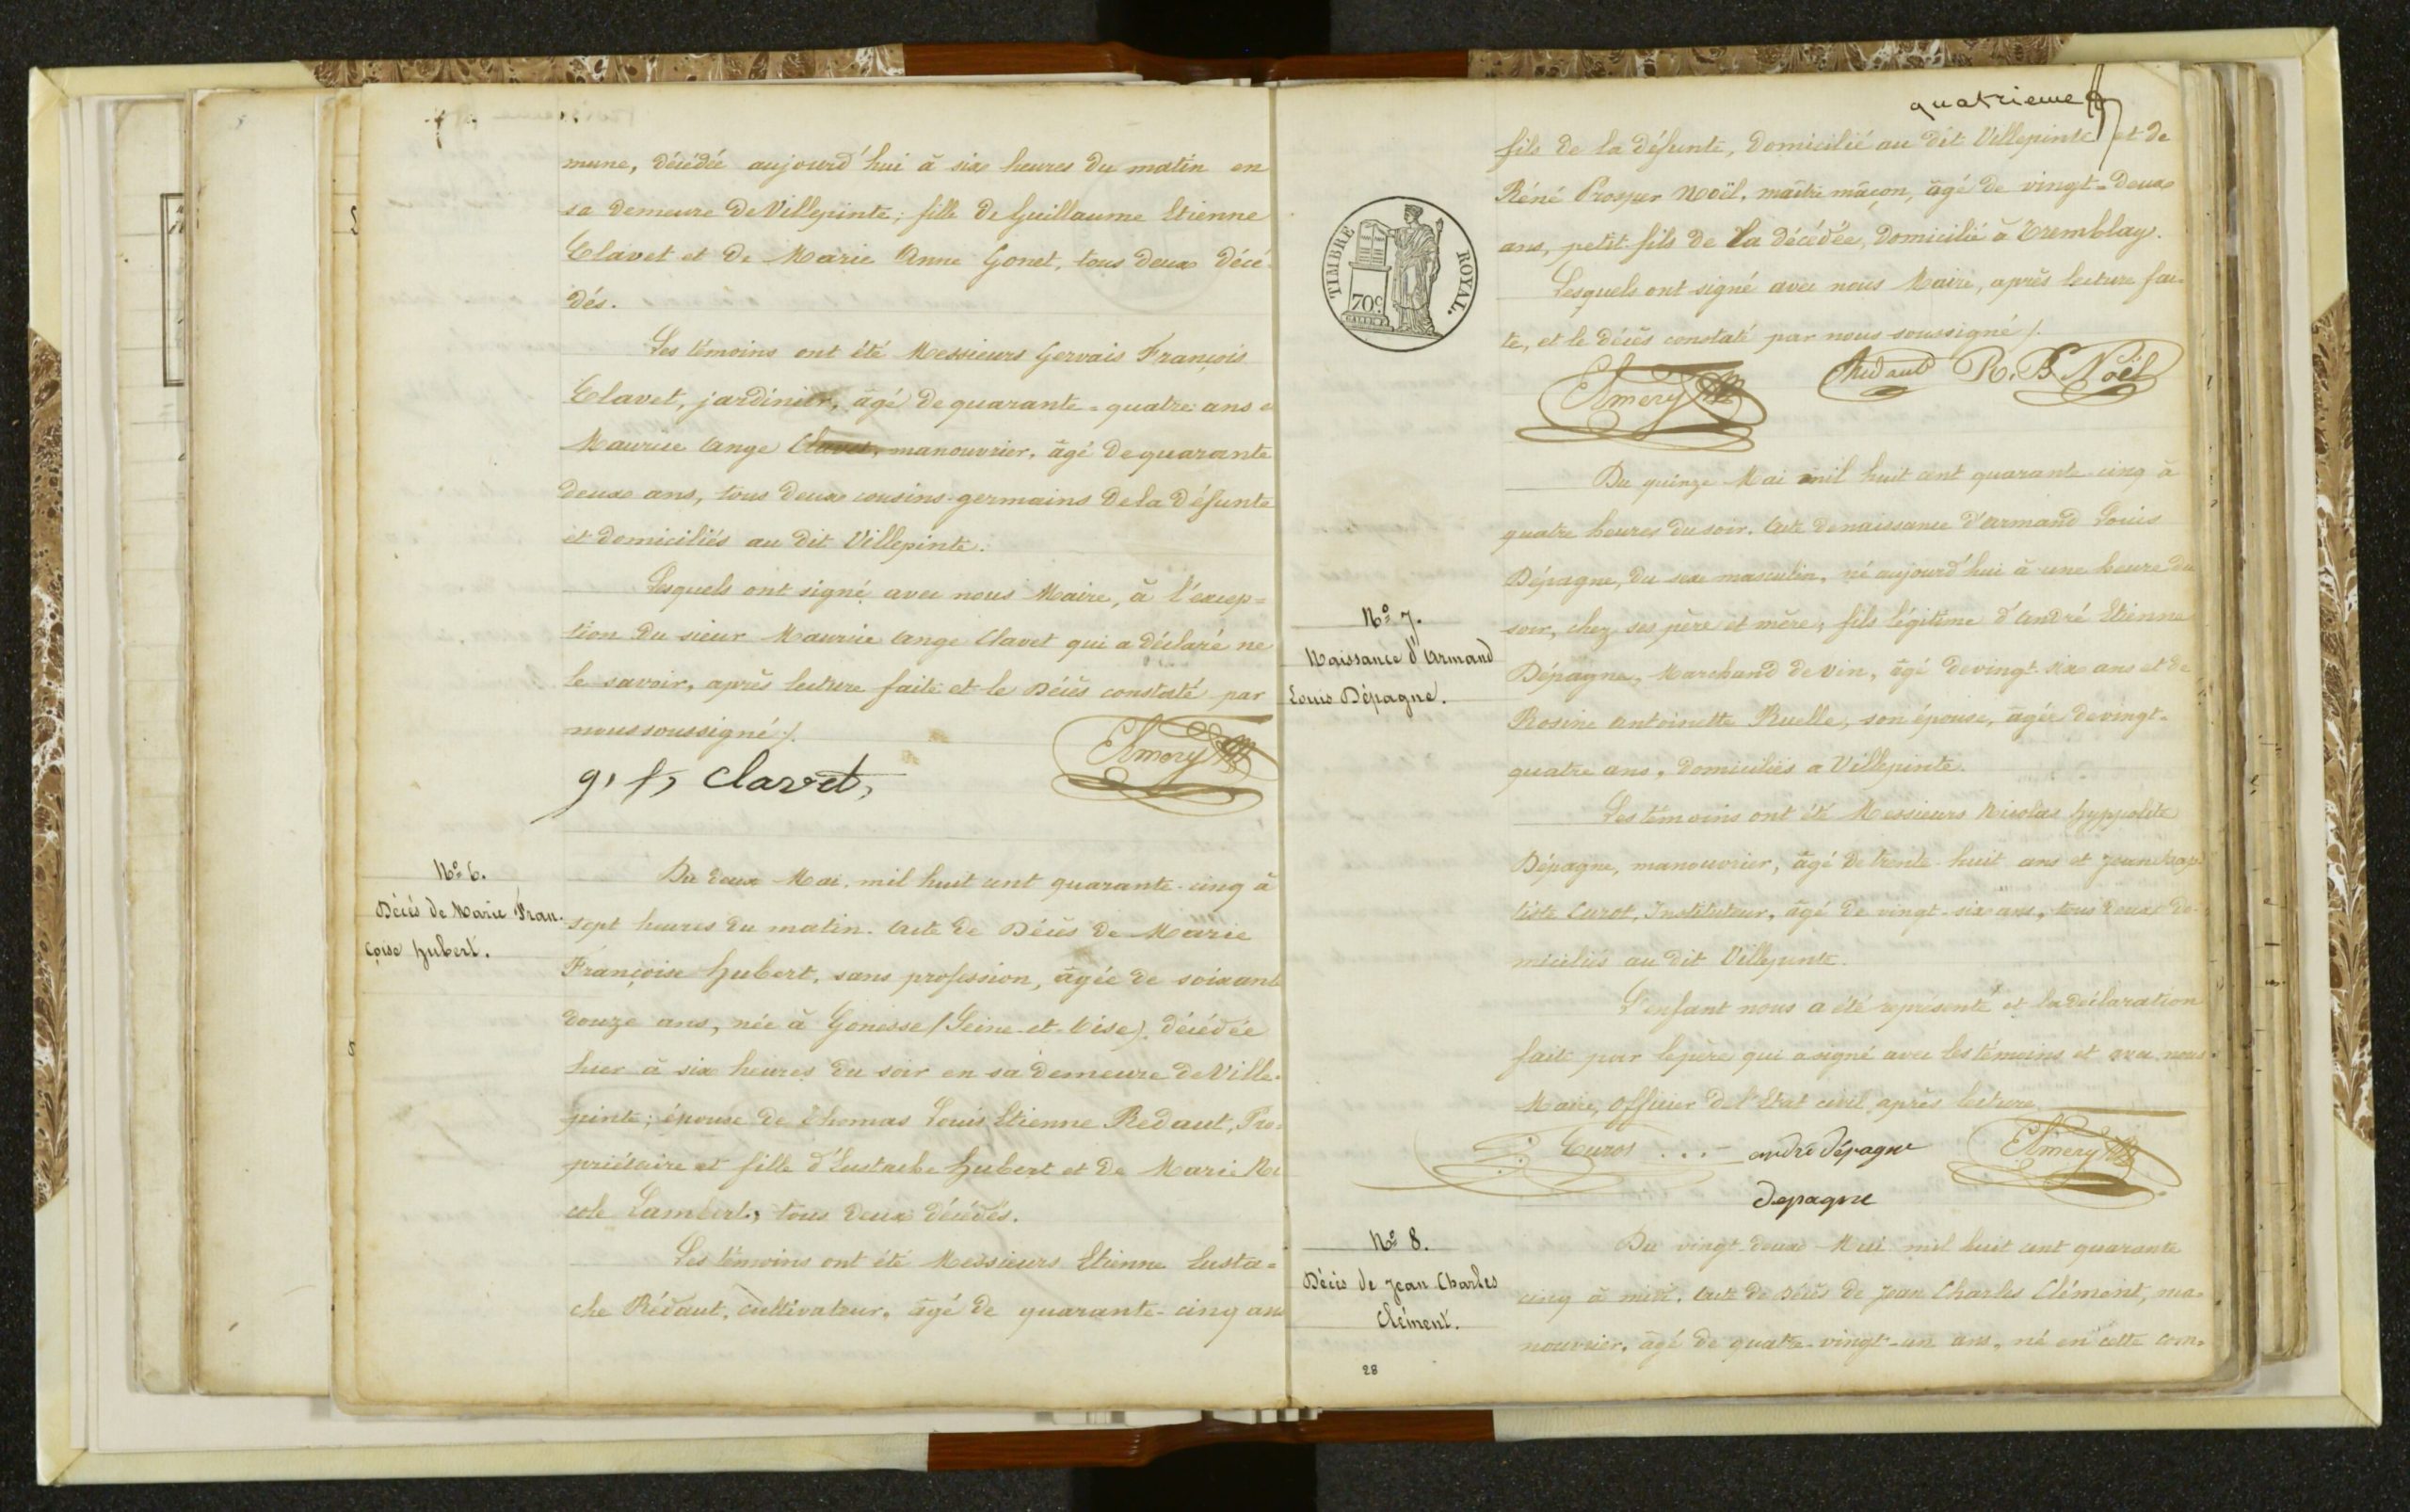 mune, décédée aujourd'hui à six heures du matin en
sa demeure de Villepinte; fille de Guillaume Etienne
Clavet et de Marie Anne Gonet, tous deux décé-
dés.
Les témoins ont été Messieurs Gervais François
Clavet, jardinier, âgé de quarante-quatre ans et
Maurice Ange Clavet, manouvrier, âgé de quarante
deux ans, tous deux cousins-germains de la défunte
et domiciliés au dit Villepinte.
Lesquels ont signé avec nous Maire, à l'excep=
tion du sieur Maurice Ange Clavet qui a déclaré ne
le savoir, après lecture faite et le Décès constaté par
nous soussigné /.
g, f, Clavet,
Emery
N° 6.
Décès de Marie Fran-
çoise hubert.
Du deux Mai mil huit cent quarante-cinq à
sept heures du matin. Acte de Décès de Marie
Françoise hubert, sans profession, âgée de soixante
douze ans, née à Gonesse (Seine-et-Oise), décédée
hier à six heures du soir en sa demeure de Ville-
pinte; épouse de Thomas Louis Etienne Redaut, Pro-
priétaire et fille d'Eustache hubert et de Marie Ni
cole Lambert, tous deux décédés.
Les témoins ont été Messieurs Etienne Eusta=
che Rédaut, cultivateur, âgé de quarante-cinq ans
quatrieme
fils de la défunte, domicilié au dit Villepinte et de
Réné Prosper Noël, maître maçon, âgé de vingt-deux
ans, petit fils de la décédée, domicilié à Tremblay.
Lesquels ont signé avec nous Maire, après lecture fai-
te, et le décès constaté par nous soussigné /.
TIMBRE ROYAL.
70c
Emery Redaut R. P. Noël
Du quinze Mai mil huit cent quarante cinq à
quatre heures du soir. Acte de naissance d'Armand Louis
Dépagne, du sexe masculin, né aujourd'hui à une heure du
soir, chez ses père et mère; fils légitime d'André Etienne
Dépagne, Marchand de vin, âgé de vingt-six ans et de
Rosine Antoinette Ruelle, son épouse, âgée de vingt-
quatre ans, domiciliés a Villepinte.
Les témoins ont été Messieurs Nicolas hyppolite
Dépagne, manouvrier, âgé de trente-huit ans et Jean bap
tiste Curot, Instituteur, âgé de vingt-six ans, tous deux do-
miciliés au dit Villepinte.
L'enfant nous a été représenté et la déclaration
faite par le père qui a signé avec les témoins et avec nous
Maire, Officier de l'Etat civil après lecture.
N° 7.
Naissance d'Armand
Louis Dépagne.
Curot andré dépagne Emery
depagne
N° 8.
Décès de Jean Charles
Clément.
Du vingt-deux Mai mil huit cent quarante
cinq à midi. Acte de Décès de Jean Charles Clément, ma-
nouvrier, âgé de quatre-vingt-un ans, né en cette com-
28